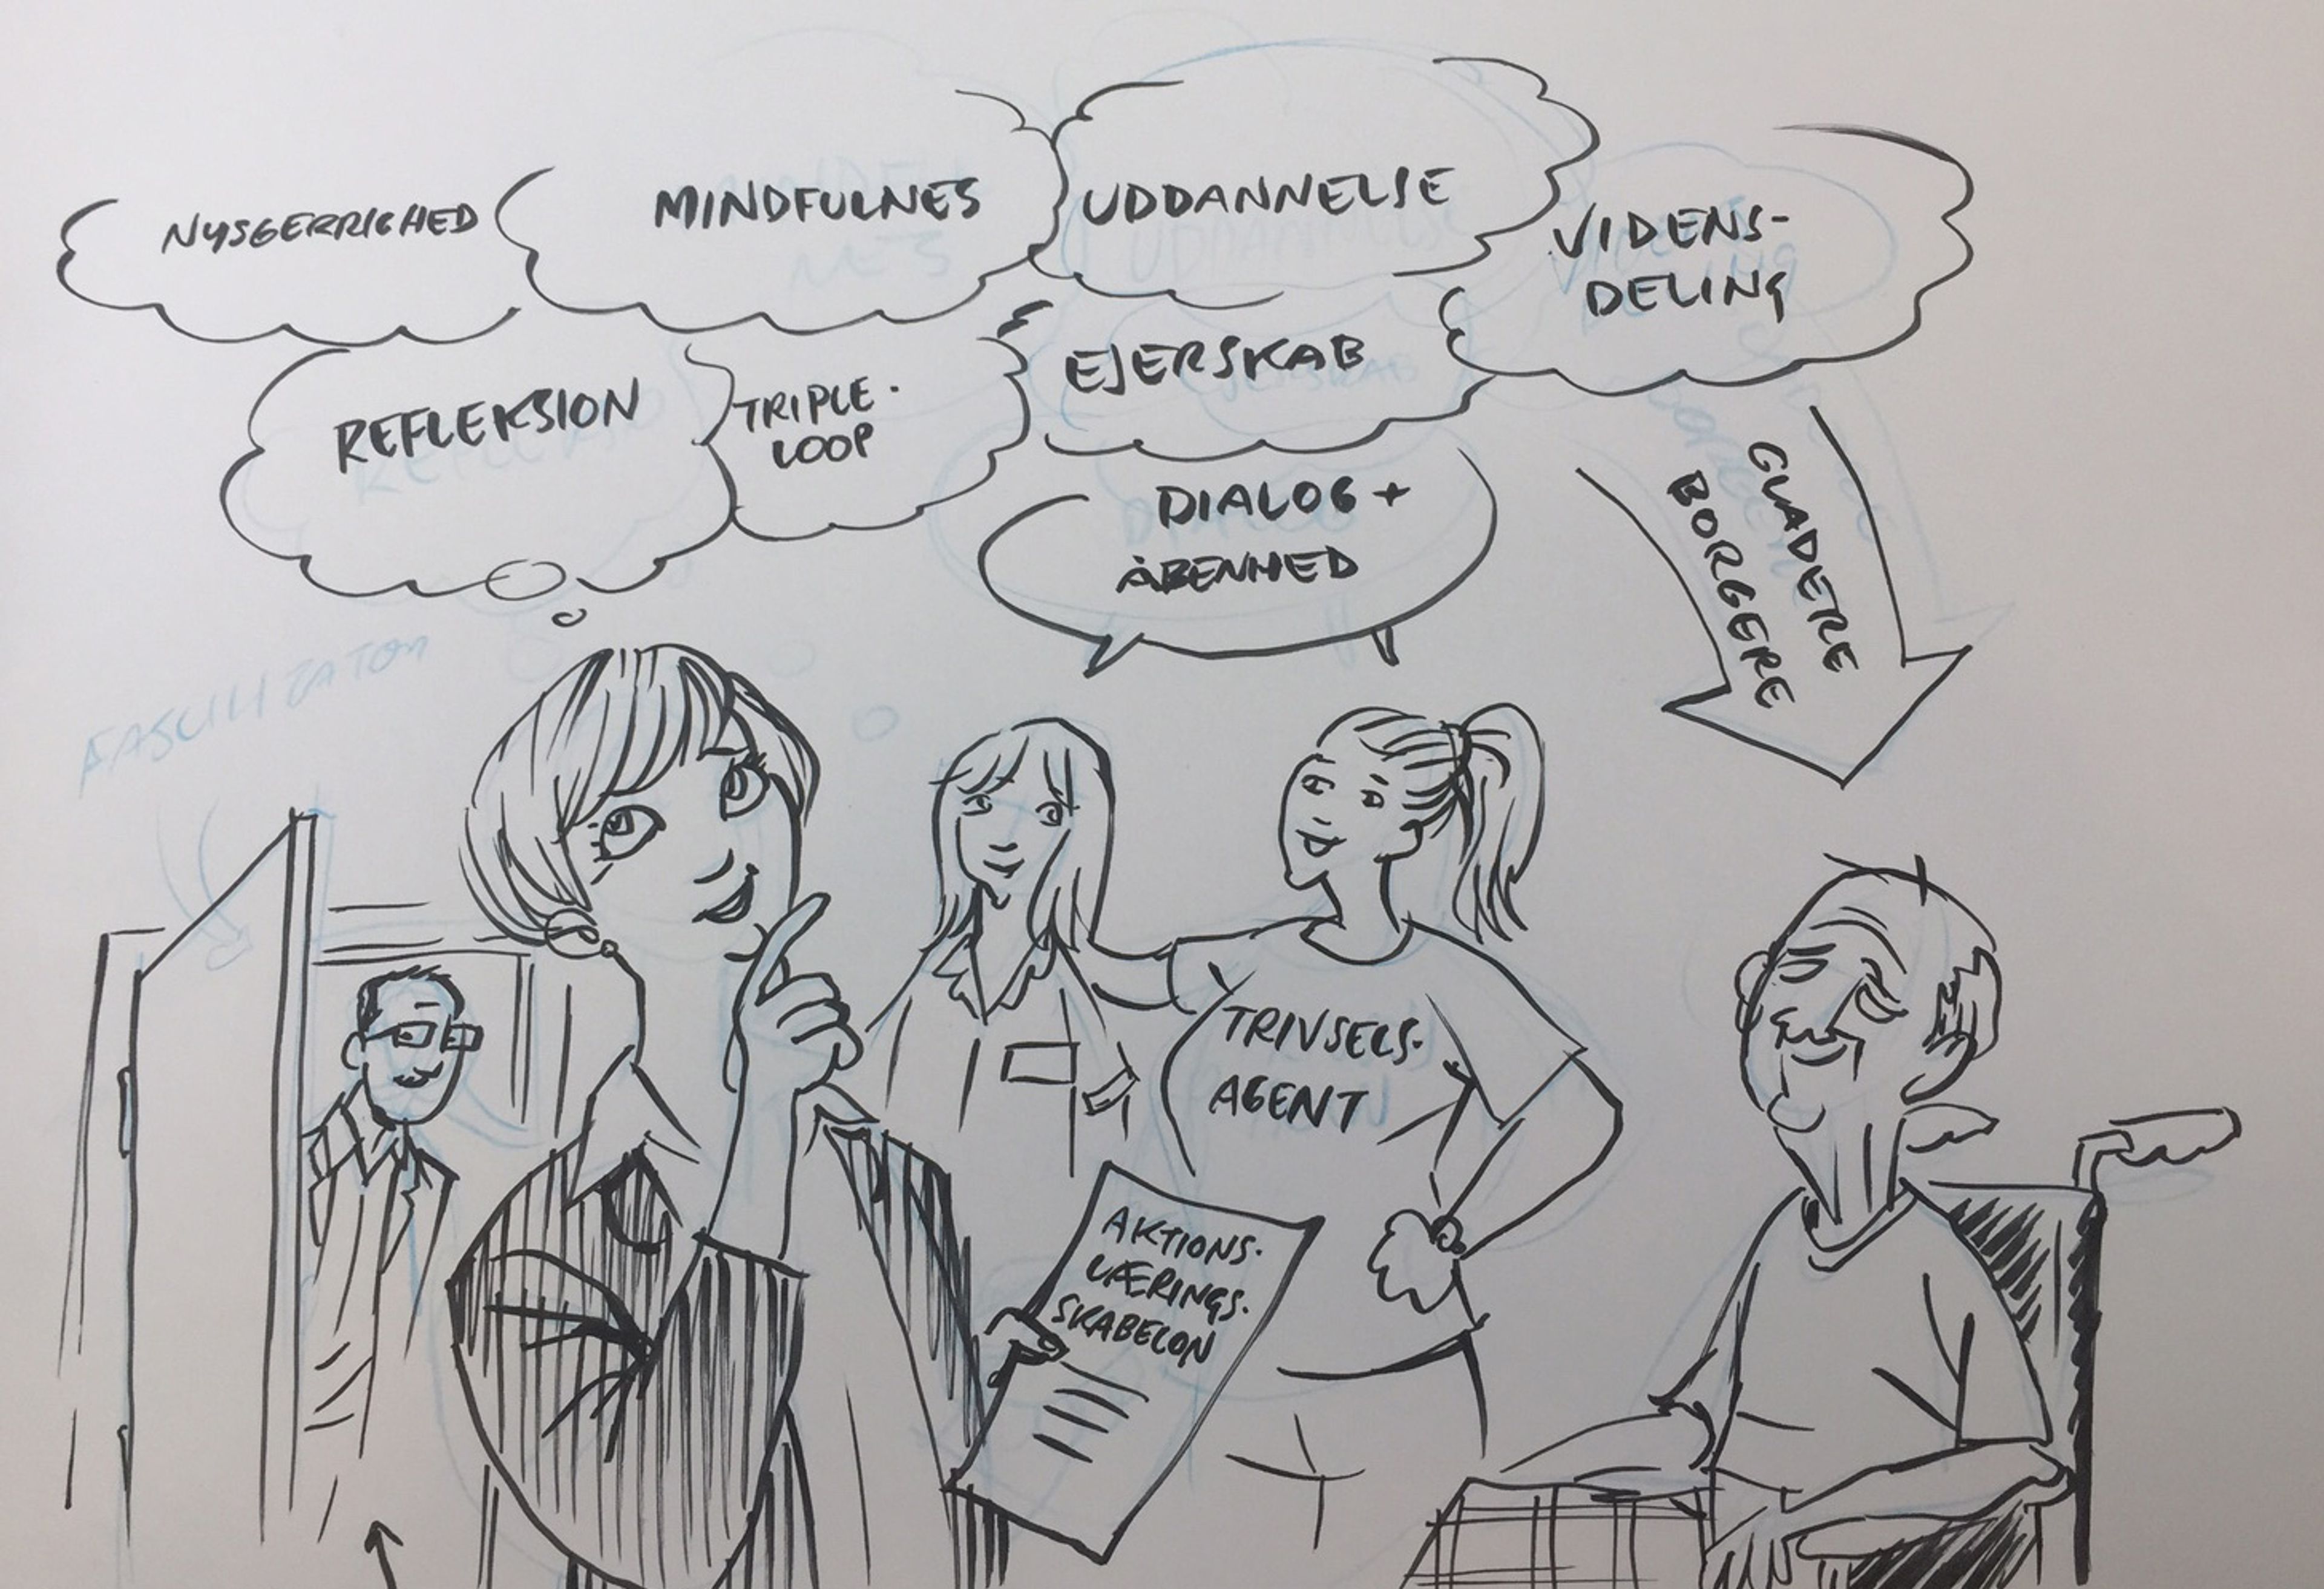 NYSGERRIGHED
MINDFULNES
UDDANNELSE
VIDENS-
DELING
REFLEKSION
TRIPLE-
LOOP
EJERSKAB
DIALOG +
ÅBENHED
GLADERE
BORGERE
FASCILITATOR
TRIVSELS-
AGENT
AKTIONS-
LÆRINGS-
SKABELON